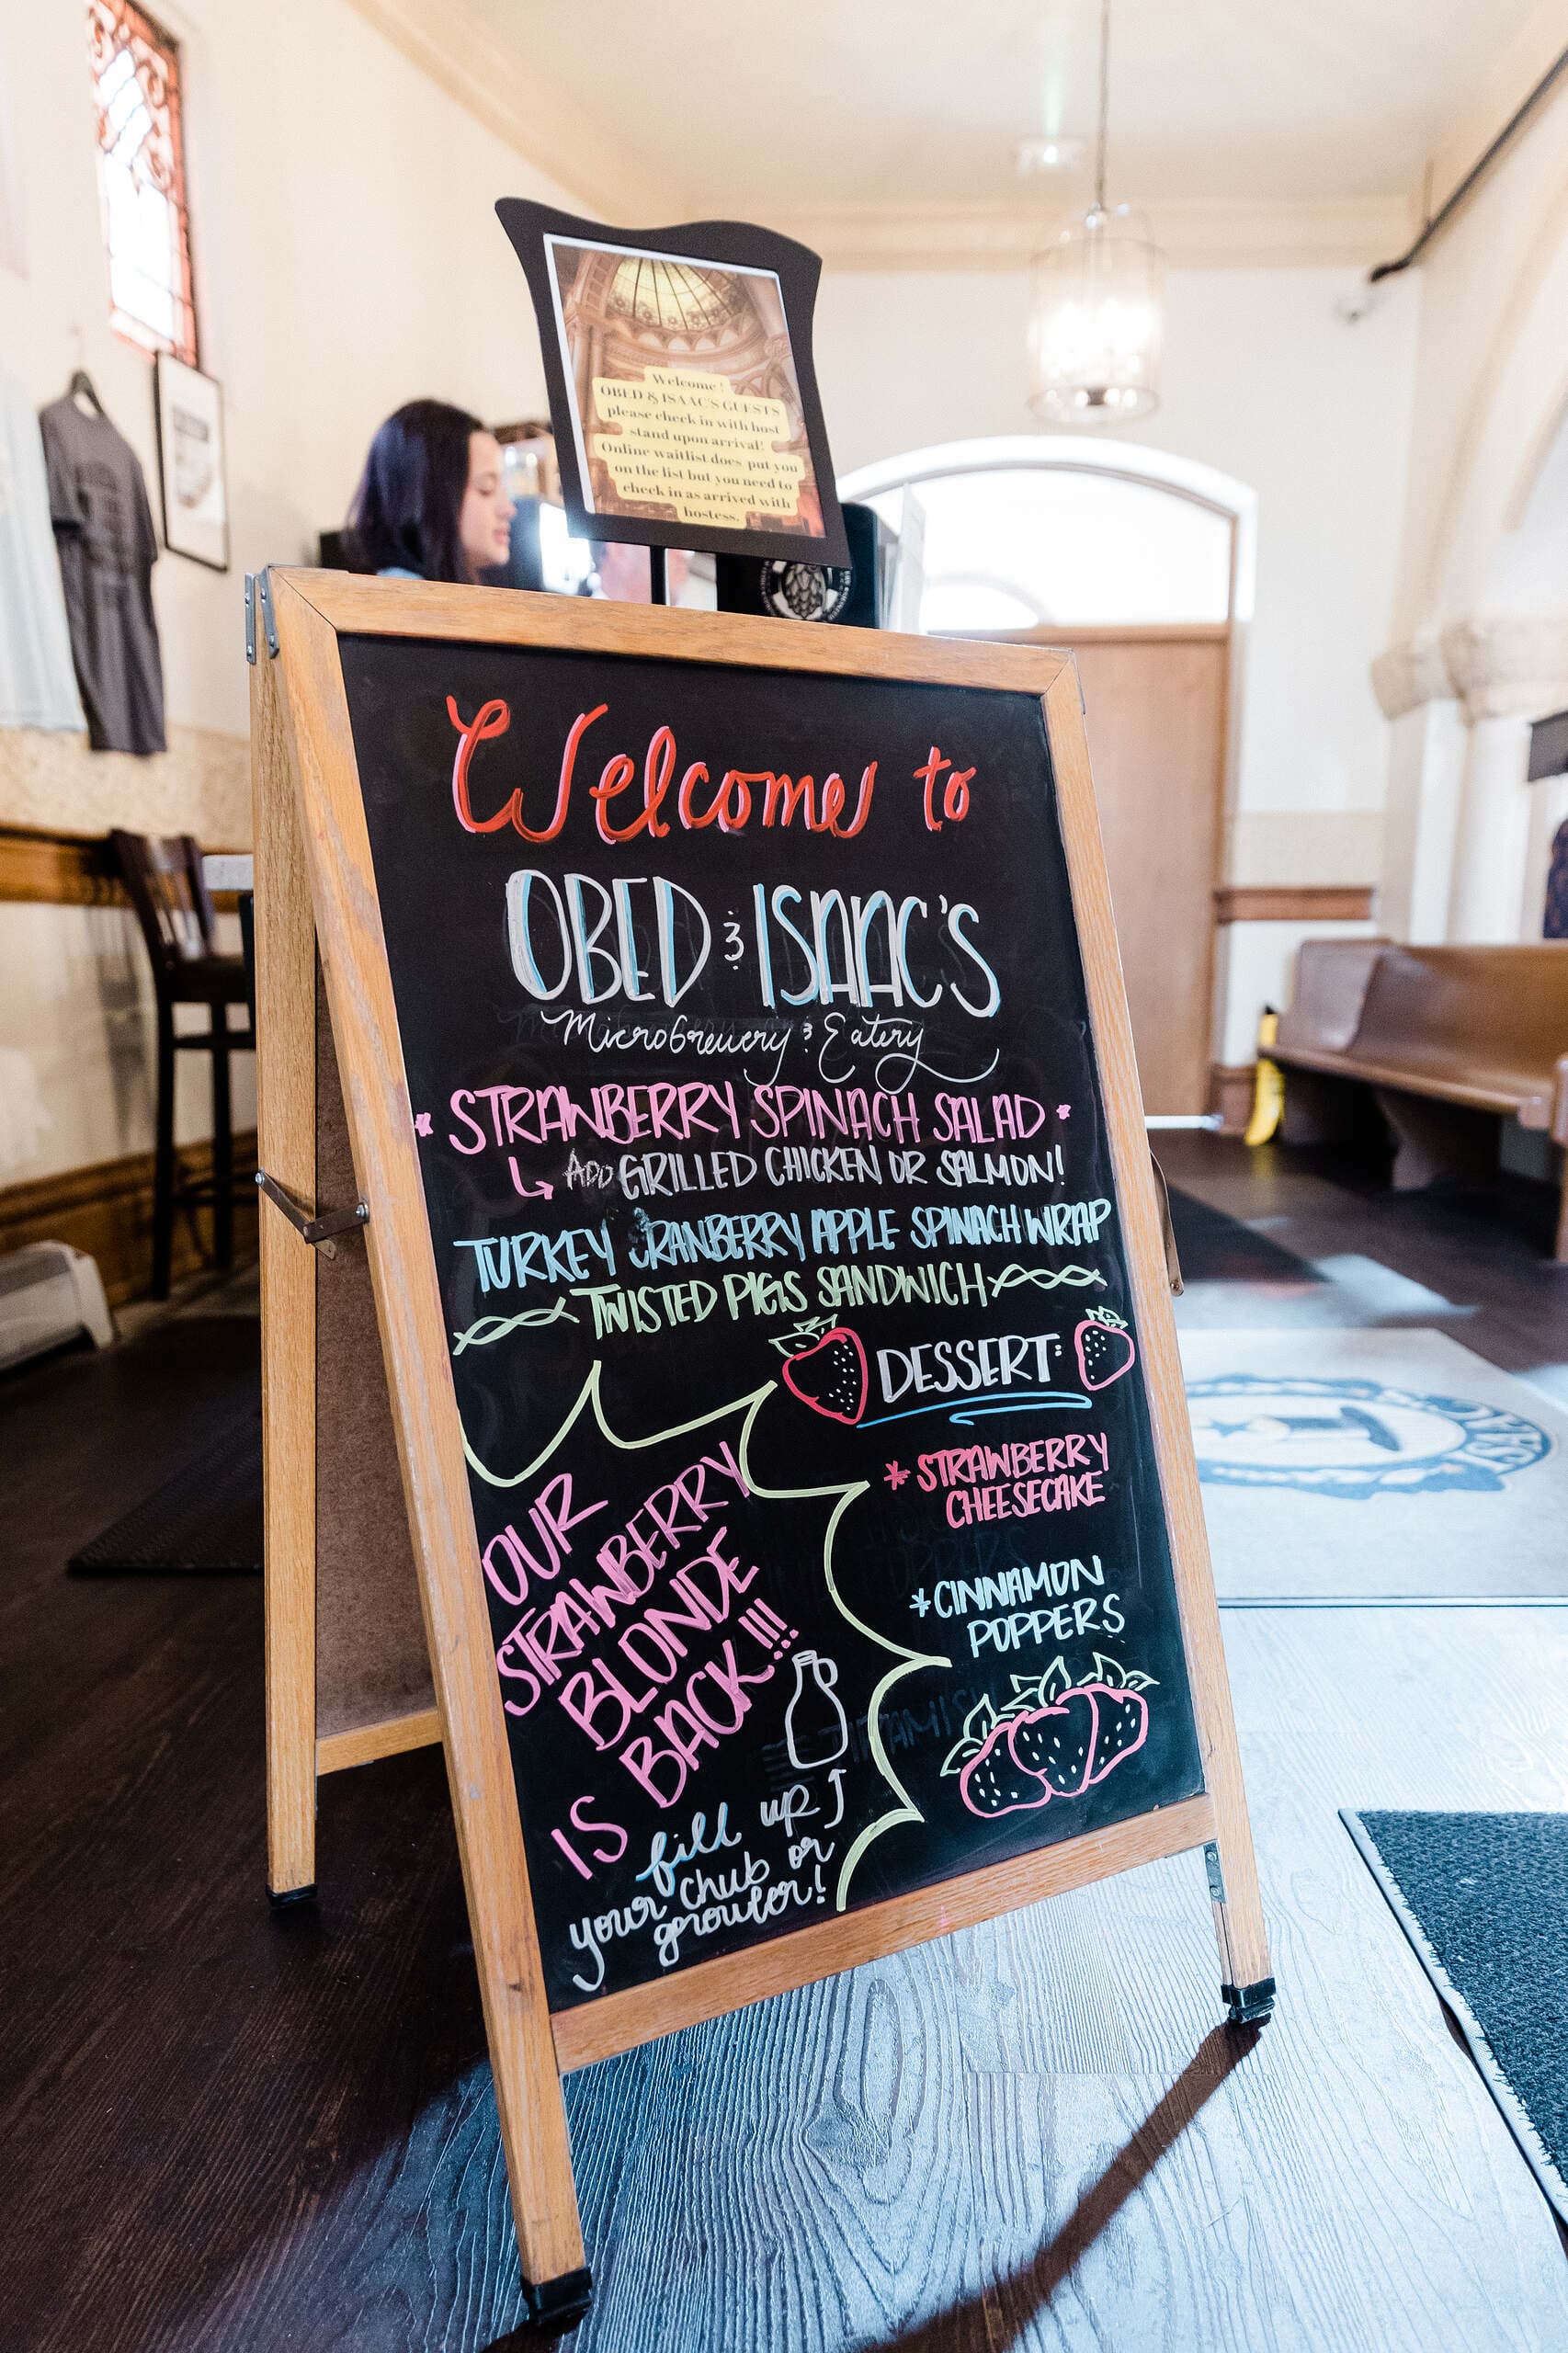 Welcome!
OBED & ISAAC'S GUESTS
please check in with host
stand upon arrival!
Online waitlist does put you
on the list but you need to
check in as arrived with
hostess.
Welcome to
OBED & ISAAC'S
Microbrewery & Eatery
* STRAWBERRY SPINACH SALAD *
ADD GRILLED CHICKEN OR SALMON!
TURKEY CRANBERRY APPLE SPINACH WRAP
TWISTED PIGS SANDWICH
DESSERT:
* STRAWBERRY
CHEESECAKE
* CINNAMON
POPPERS
OUR
STRAWBERRY
BLONDE
IS BACK!!!
fill up
your chub or
growler!
ISAAC'S